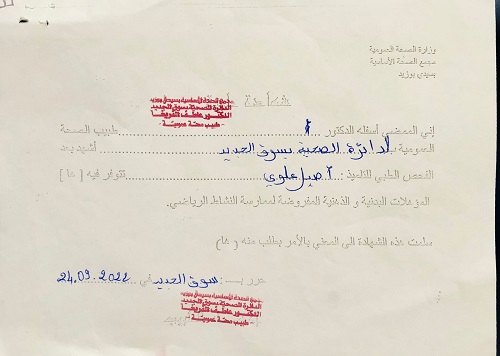 وزارة الصحة العمومية
مجمع الصحة الأساسية
بسيدي بوزيد
شهادة
مجمع الصحة الأساسية بسيدي بوزيد
الدائرة الصحية بسوق الجديد
الدكتور عاطف
طبيب صحة عمومية
إني الممضي أسفله الدكتور طبيب الصحة
العمومية بـ الدائرة الصحية بسوق الجديد أشهد بعد
الفحص الطبي للتلميذ : أصيل علوي تتوفر فيه [ها]
المؤهلات البدنية و الذهنية المفروضة لممارسة النشاط الرياضي.
سلمت هذه الشهادة الى المعني بالأمر بطلب منه و (ها)
حرر بـ : سوق الجديد في 24.09.2022
مجمع الصحة الأساسية بسيدي بوزيد
الدائرة الصحية بسوق الجديد
الدكتور عاطف
طبيب صحة عمومية